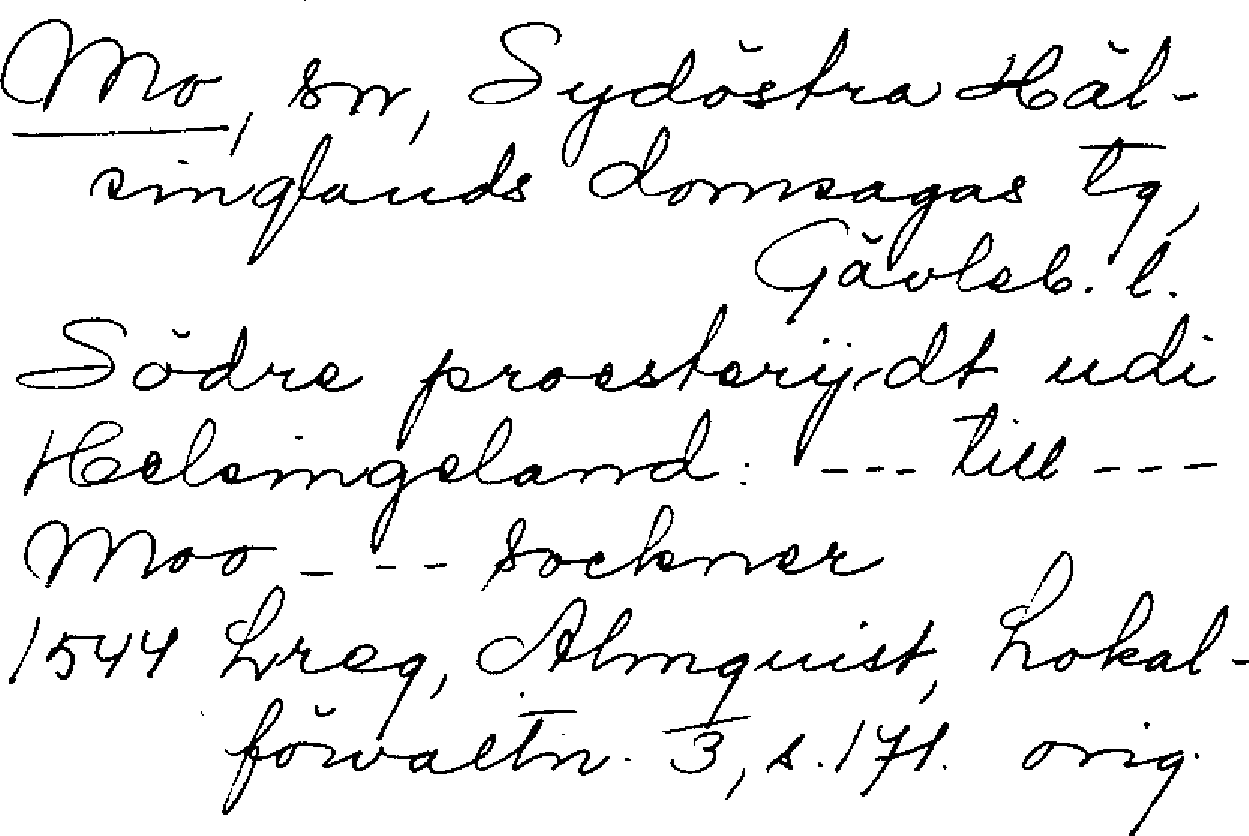 Mo, sn, Sydöstra Häl-
singlands domsagas tg,
Gävleb. l.
Södre proesterijdt udi
Helsingeland: --- till ---
Moo --- sockner
1544 Lreg, Almquist, Lokal-
förvaltn. 3, s. 171. orig.